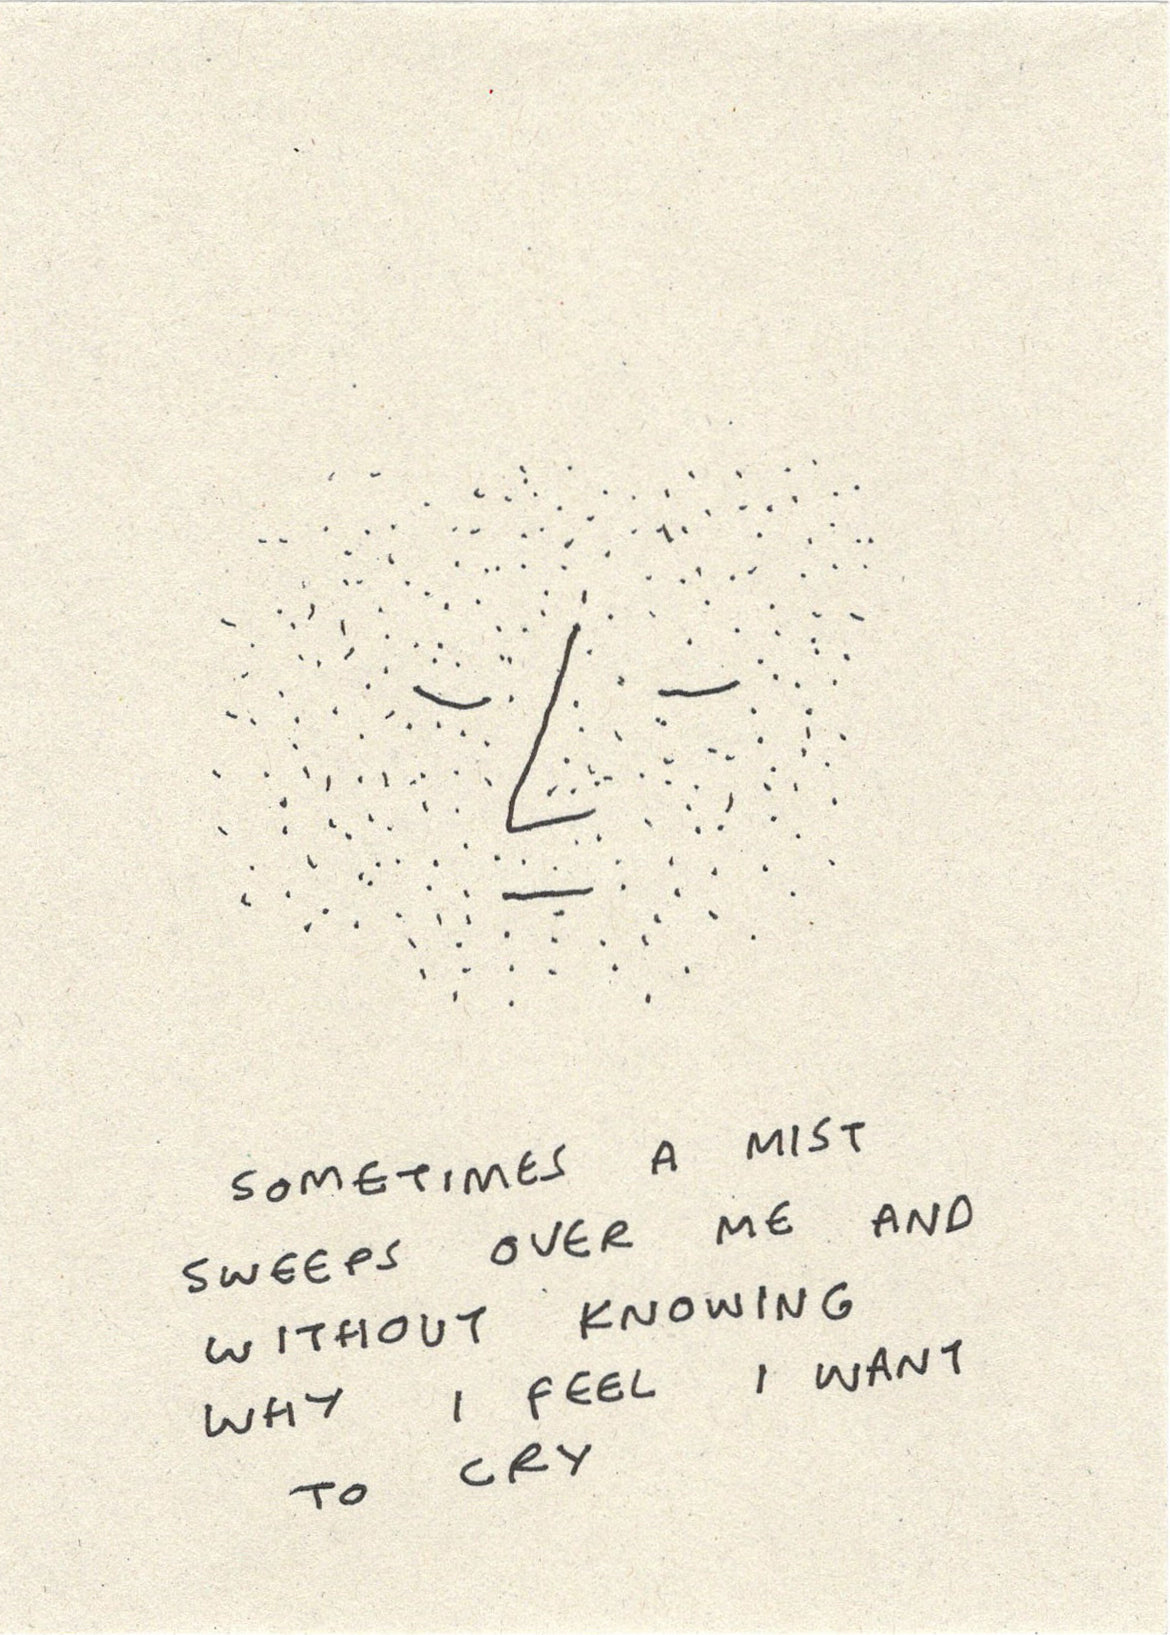 SOMETIMES A MIST
SWEEPS OVER ME AND
WITHOUT KNOWING
WHY I FEEL I WANT
TO CRY